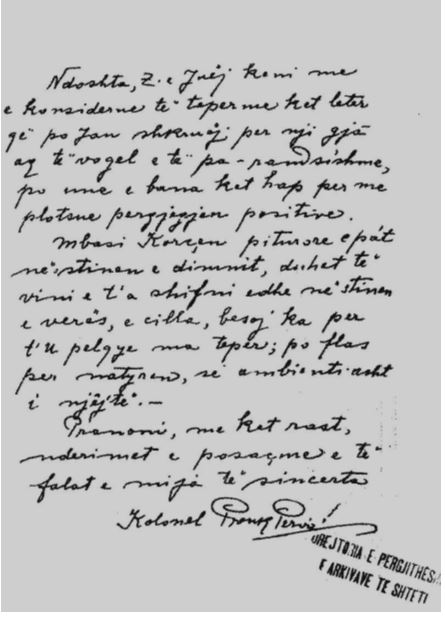 Ndoshta, Z. e Juej keni me
e konsiderue të teper me ket leter
që po Jau shkruej per nji gjâ
aq të vogel e të pa-randsishme,
po une e bana ket hap per me
plotsue pergjegjjen positive.
Mbasi Korçen piturore e pát
në stinen e dimnit, duhet të
vini e t'a shifni edhe në stinen
e verës, e cilla, besoj ka per
t'U pelqye ma teper; po flas
per natyren, se ambienti asht
i njëjtë.-
Pranoni, me ket rast,
nderimet e posaçme e të
falat e mija të sincerta
Kolonel Prenk Pervizi
DREJTORIA E PERGJITHES
E ARKIVAVE TE SHTETI